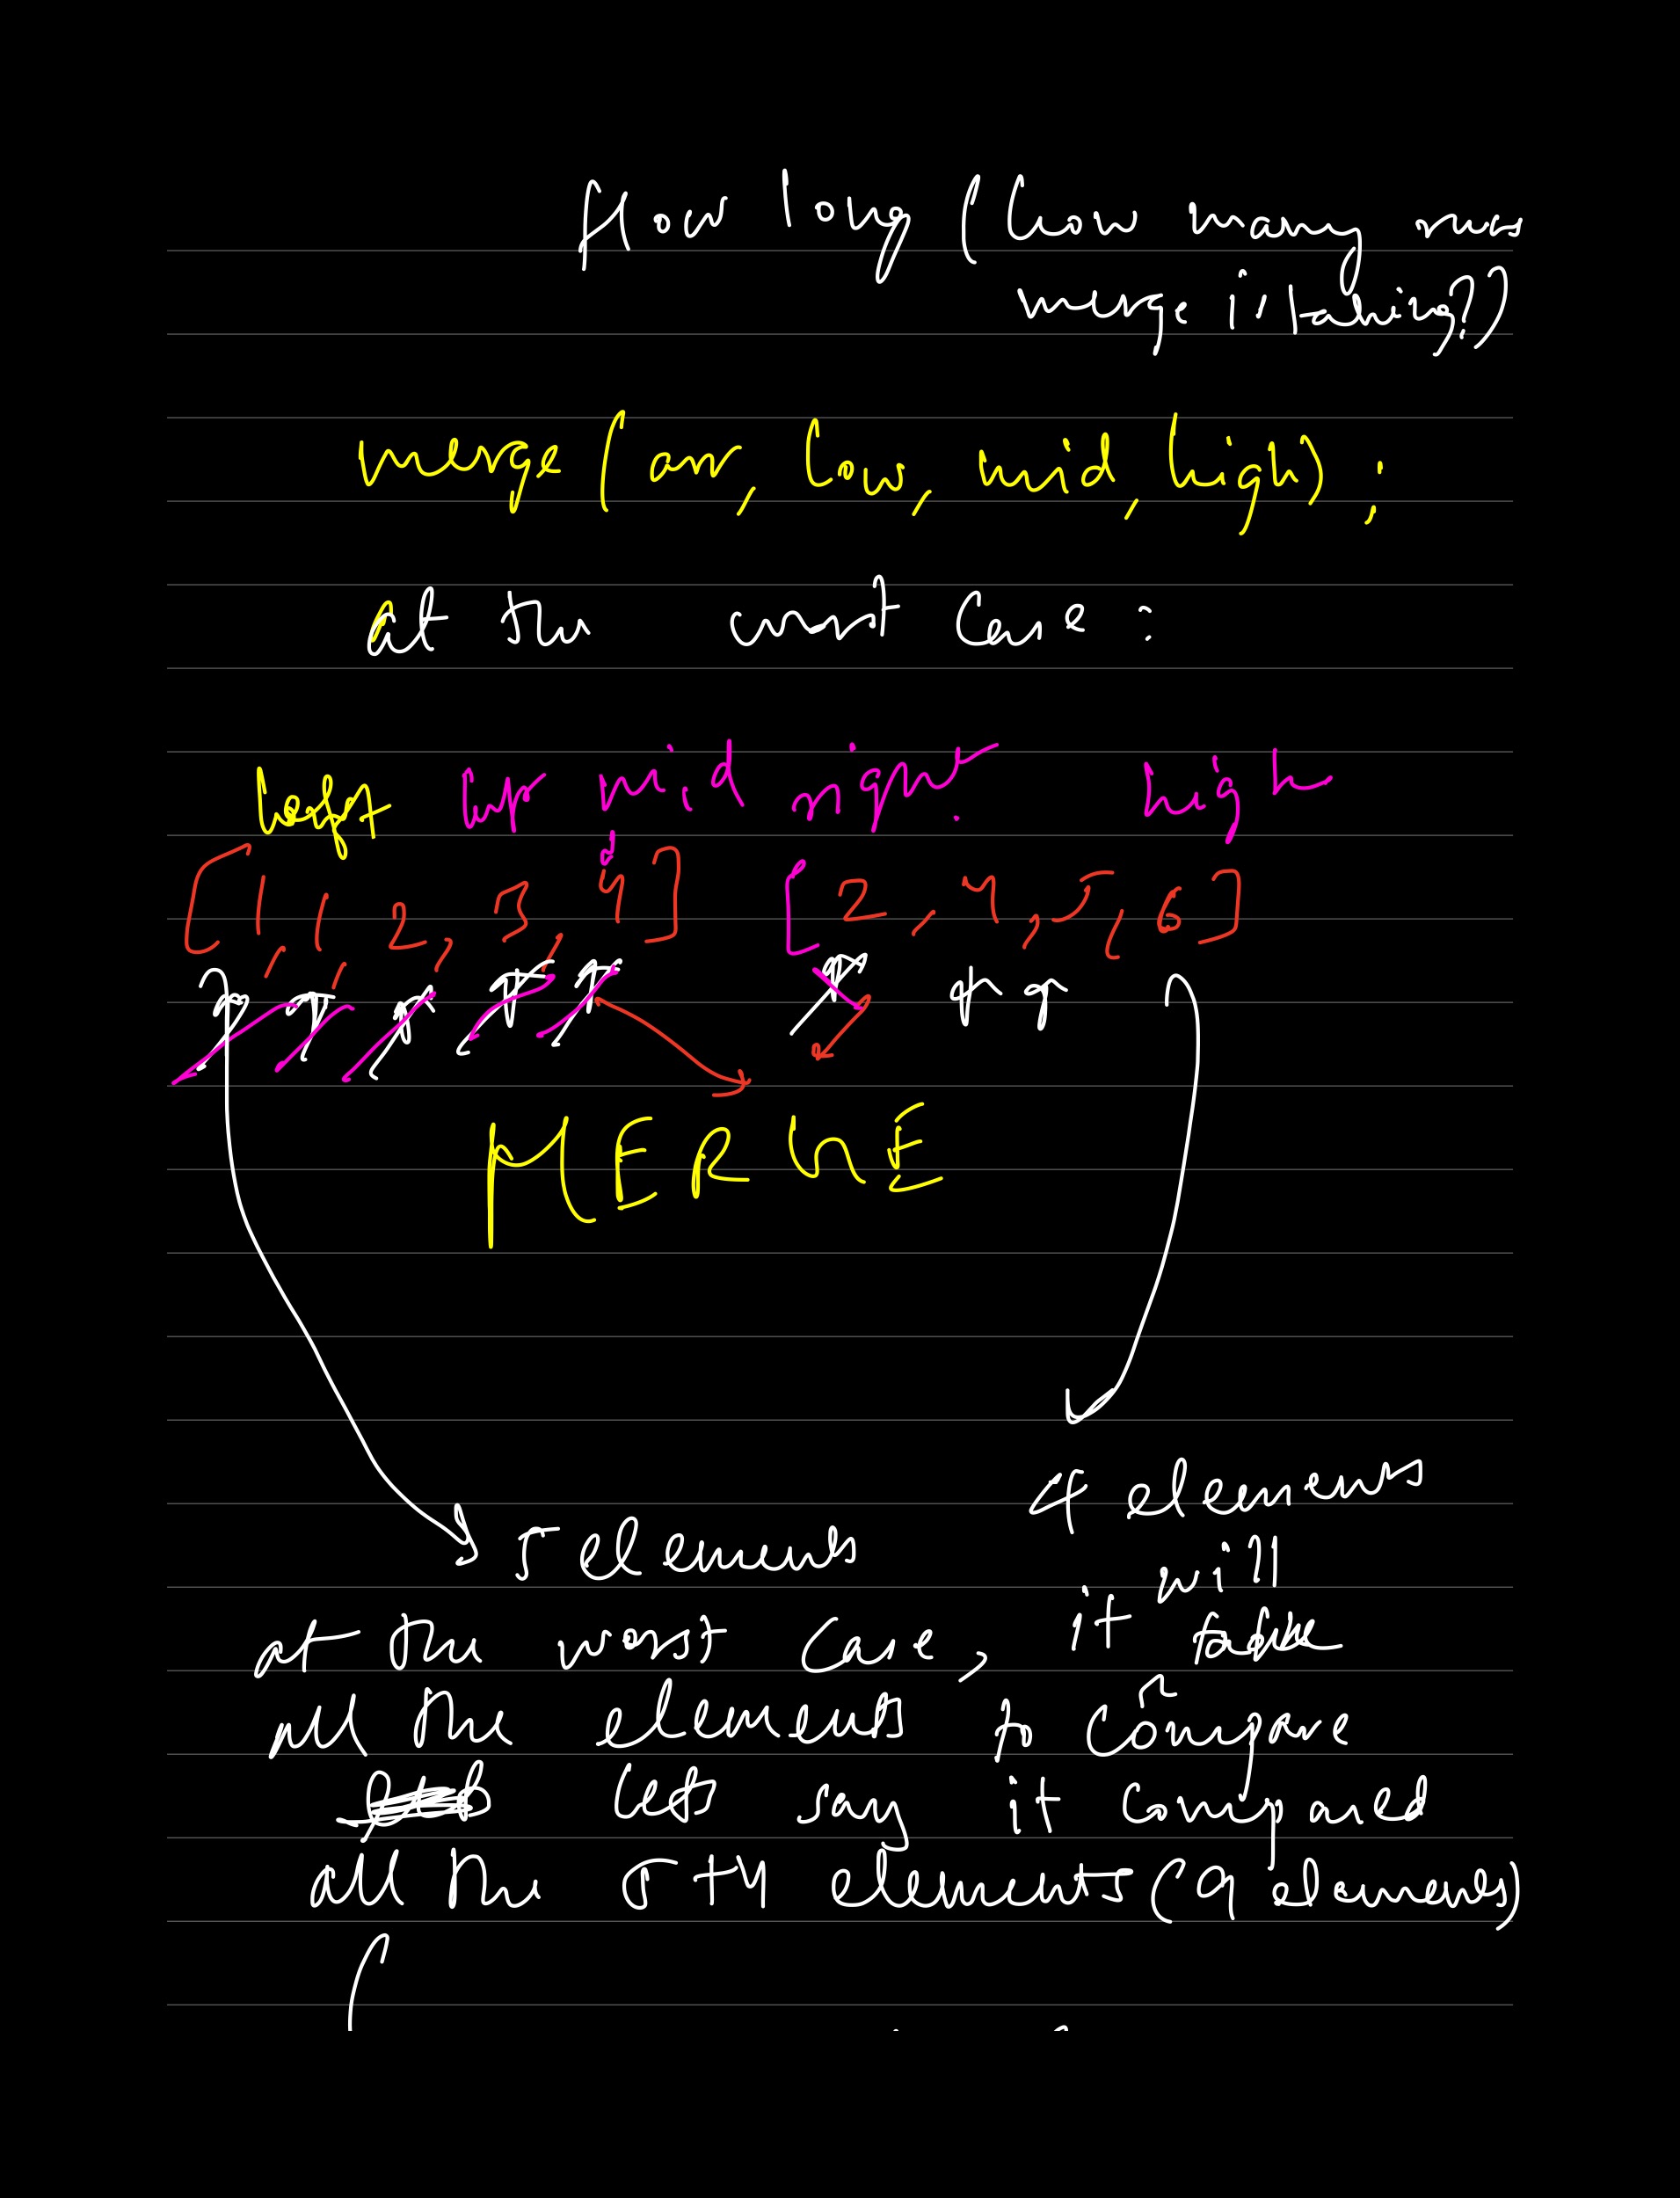 How long (how many runs
merge is taking??)
merge(arr, low, mid, high);
at the worst case:
left mid right high
[1, 1, 2, 3, 4] [2, 4, 5, 6]
MERGE
4 elements
5 elements
will
at the worst case, it take
all the elements to compare
lets say it compared
all the 5+4 elements (9 elements)